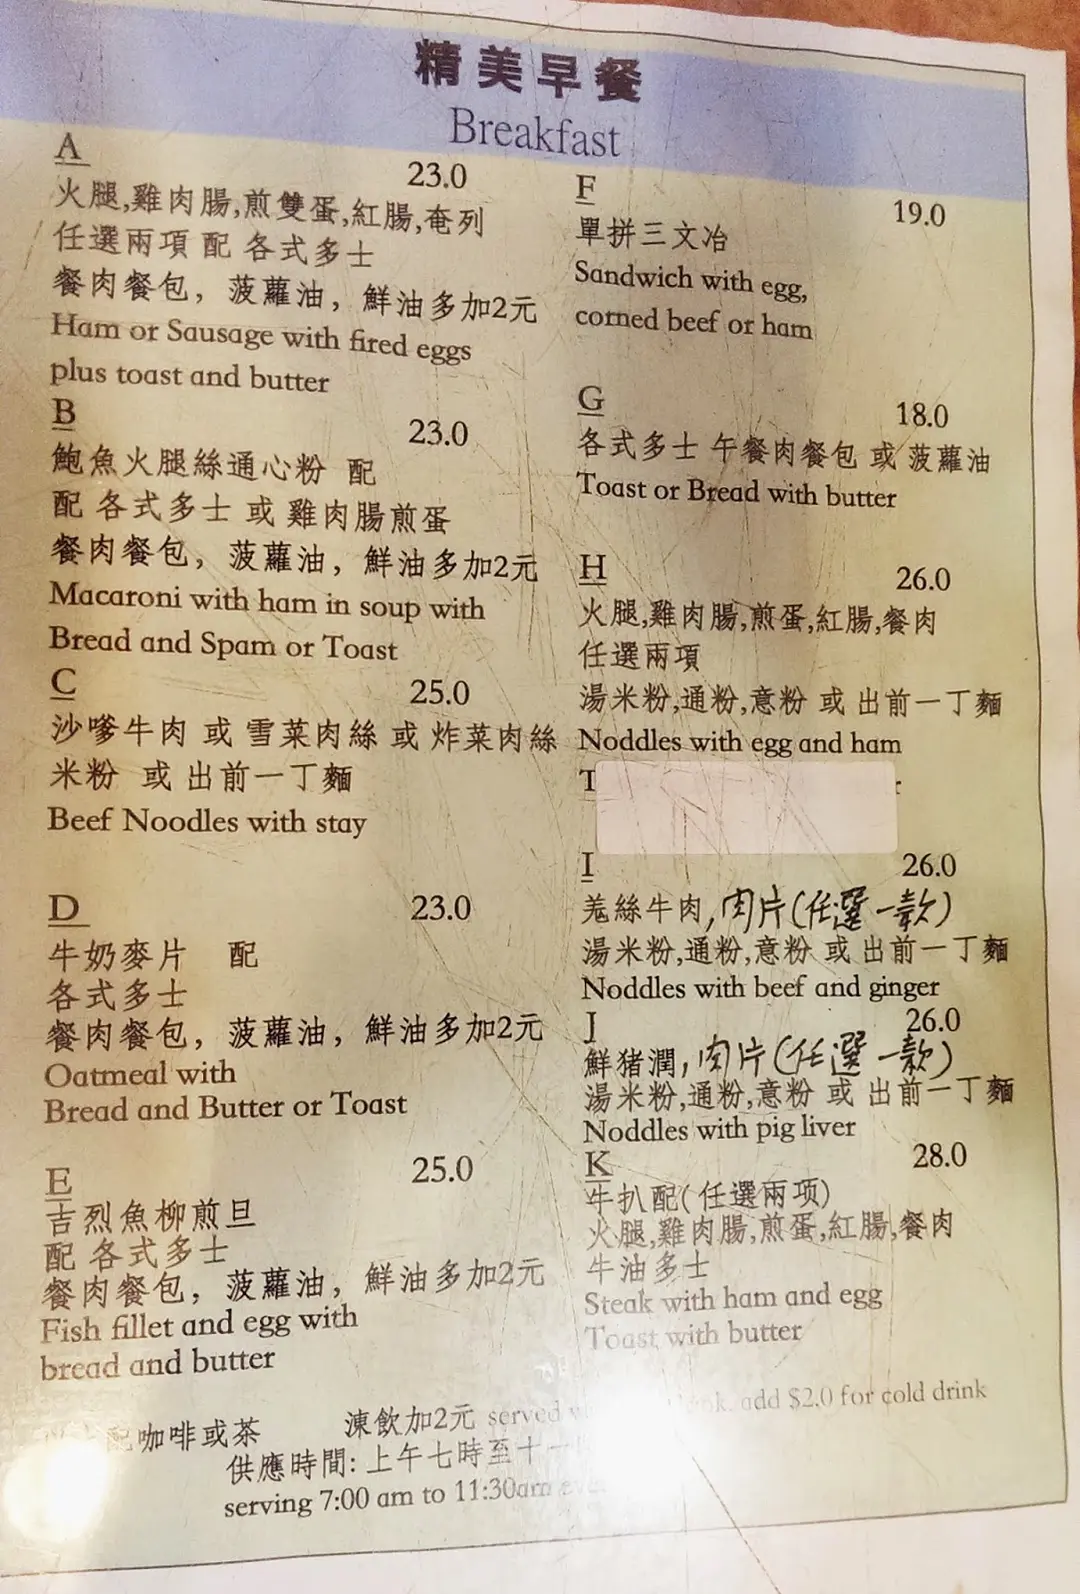 精美早餐
Breakfast
A
23.0
火腿,雞肉腸,煎雙蛋,紅腸,奄列
任選兩項 配 各式多士
餐肉餐包，菠蘿油，鮮油多加2元
Ham or Sausage with fired eggs
plus toast and butter
B
23.0
鮑魚火腿絲通心粉 配
配 各式多士 或 雞肉腸煎蛋
餐肉餐包，菠蘿油，鮮油多加2元
Macaroni with ham in soup with
Bread and Spam or Toast
C
25.0
沙嗲牛肉 或 雪菜肉絲 或 炸菜肉絲
米粉 或 出前一丁麵
Beef Noodles with stay
D
23.0
牛奶麥片 配
各式多士
餐肉餐包，菠蘿油，鮮油多加2元
Oatmeal with
Bread and Butter or Toast
E
25.0
吉烈魚柳煎旦
配 各式多士
餐肉餐包，菠蘿油，鮮油多加2元
Fish fillet and egg with
bread and butter
F
19.0
單拼三文冶
Sandwich with egg,
corned beef or ham
G
18.0
各式多士 午餐肉餐包 或 菠蘿油
Toast or Bread with butter
H
26.0
火腿,雞肉腸,煎蛋,紅腸,餐肉
任選兩項
湯米粉,通粉,意粉 或 出前一丁麵
Noddles with egg and ham
I
26.0
羗絲牛肉,肉片(任選一款)
湯米粉,通粉,意粉 或 出前一丁麵
Noddles with beef and ginger
J
26.0
鮮猪潤,肉片(任選一款)
湯米粉,通粉,意粉 或 出前一丁麵
Noddles with pig liver
K
28.0
牛扒配(任選兩项)
火腿,雞肉腸,煎蛋,紅腸,餐肉
牛油多士
Steak with ham and egg
Toast with butter
配咖啡或茶 涷飲加2元 served add $2.0 for cold drink
供應時間:上午七時至十一
serving 7:00 am to 11:30am